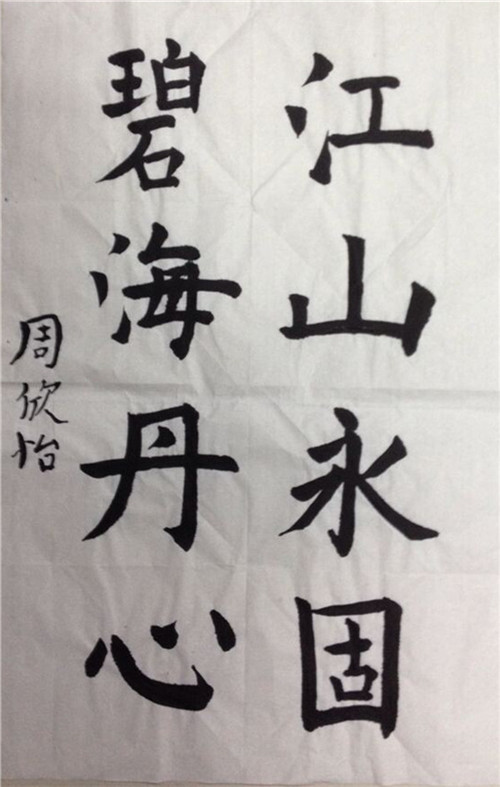 江山永固
碧海丹心
周欣怡